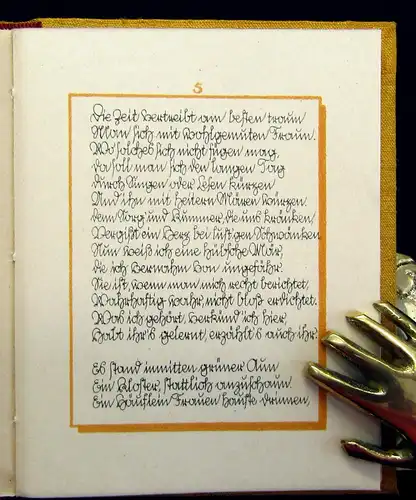 5
Die Zeit vertreibt am besten traun
Man sich mit wohlgemuten Fraun.
Wo solches sich nicht fügen mag,
da soll man sich den langen Tag
durch Singen oder Lesen kürzen
Und ihn mit heitern Mären würzen.
denn Sorg und Kummer, die uns kränken,
Vergißt ein Herz bei lustigen Schwänken
Nun weiß ich eine hübsche Mär,
die ich vernahm von ungefähr.
Sie ist, wenn man mich recht berichtet,
Wahrhaftig wahr, nicht bloß erdichtet.
Was ich gehört, verkünd ich hier,
Habt ihr's gelernt, erzählt's auch ihr!
Es stand inmitten grüner Aun
Ein Kloster, stattlich anzuschaun.
Ein Häuflein Frauen hauste drinnen,